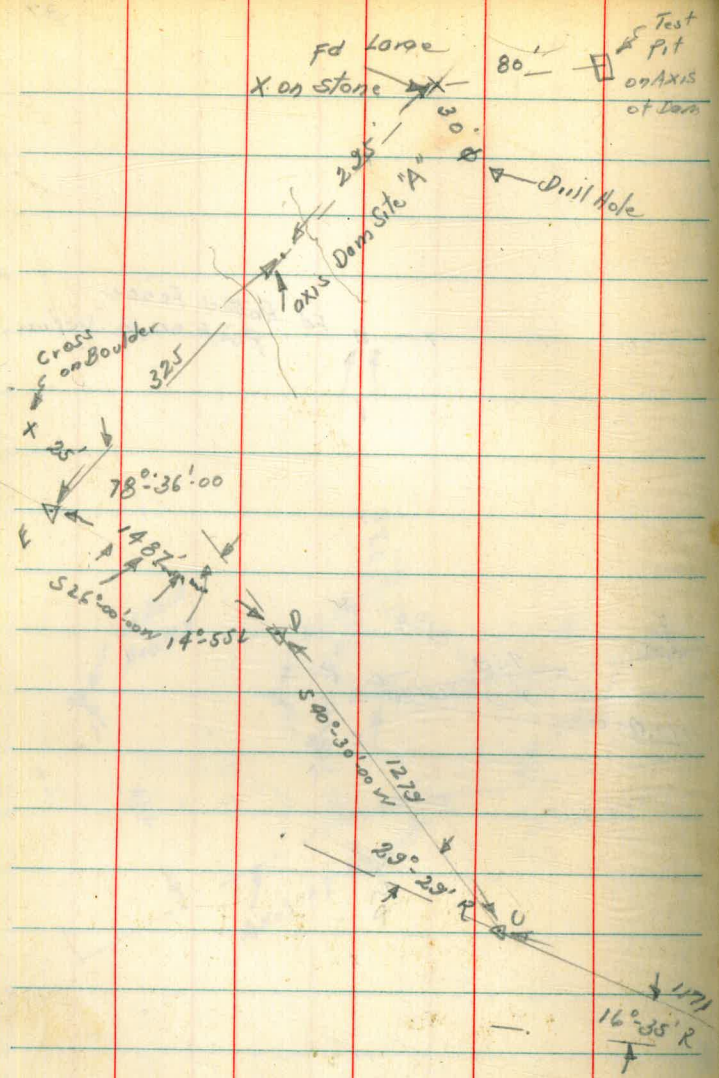 Fd Large
X on Stone
80'
Test
Pit
on Axis
of Dam
30'
Drill Hole
295'
axis Dam Site "A"
325
Cross
on Boulder
X
25'
78°-36'-00
E
1487'
S26°-00'-00W
14°-55L
D
S40°-30'-00W
1279
29°-29'
R
C
1171
16°-35'R